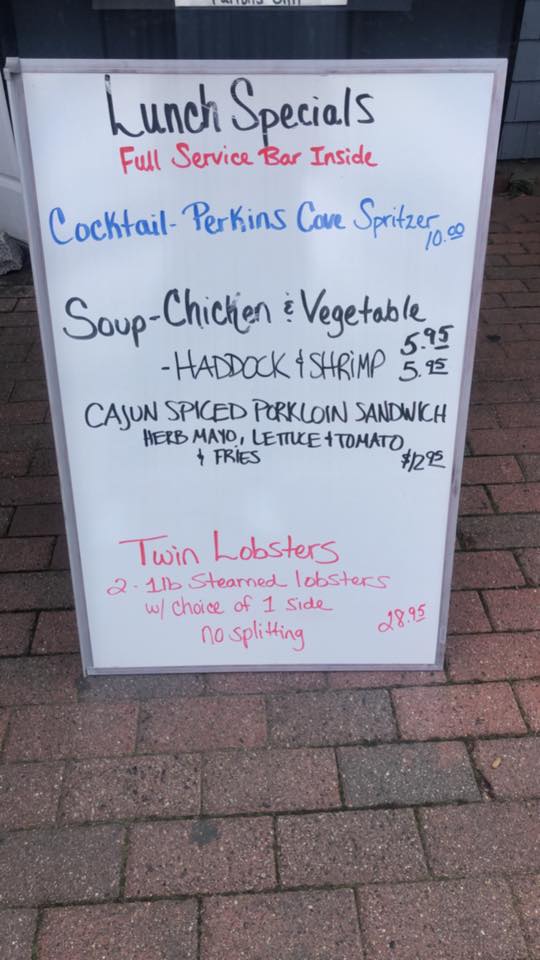 Lunch Specials
Full Service Bar Inside
Cocktail - Perkins Cove Spritzer
10.00
Soup - Chicken & Vegetable
5.95
- HADDOCK & SHRIMP 5.95
CAJUN SPICED PORKLOIN SANDWICH
HERB MAYO, LETTUCE + TOMATO
& FRIES $12.95
Twin Lobsters
2 - 1lb Steamed lobsters
w/ choice of 1 side 28.95
no splitting